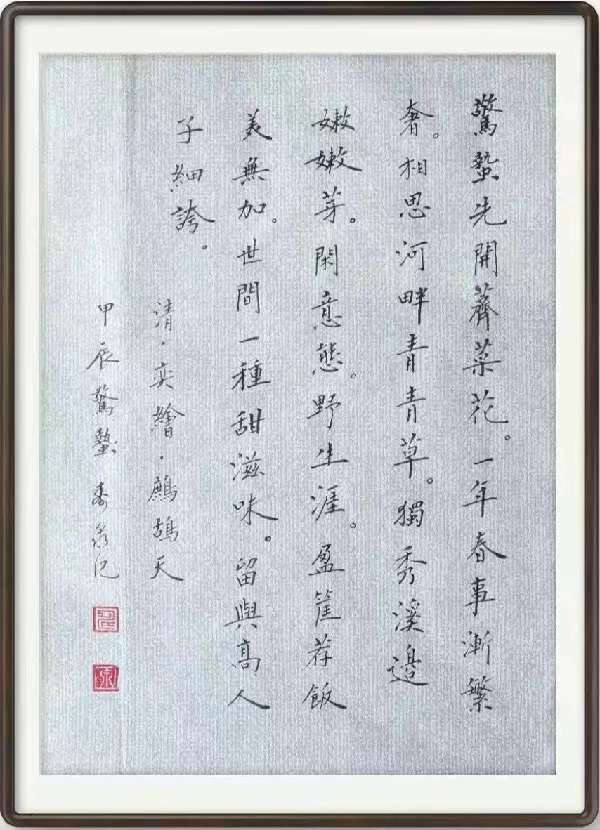 驚蟄先開薺菜花。一年春事漸繁
奢。相思河畔青青草。獨秀溪邊
嫩嫩芽。閑意態。野生涯。盈筐荐飯
美無加。世間一種甜滋味。留與高人
子細誇。
清·奕繪·鷓鴣天
甲辰驚蟄